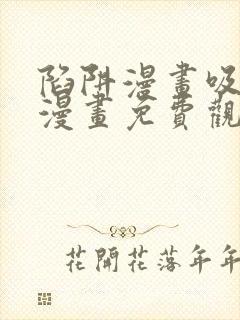 陷阱漫畫吸
漫畫免費觀
花開花落年年